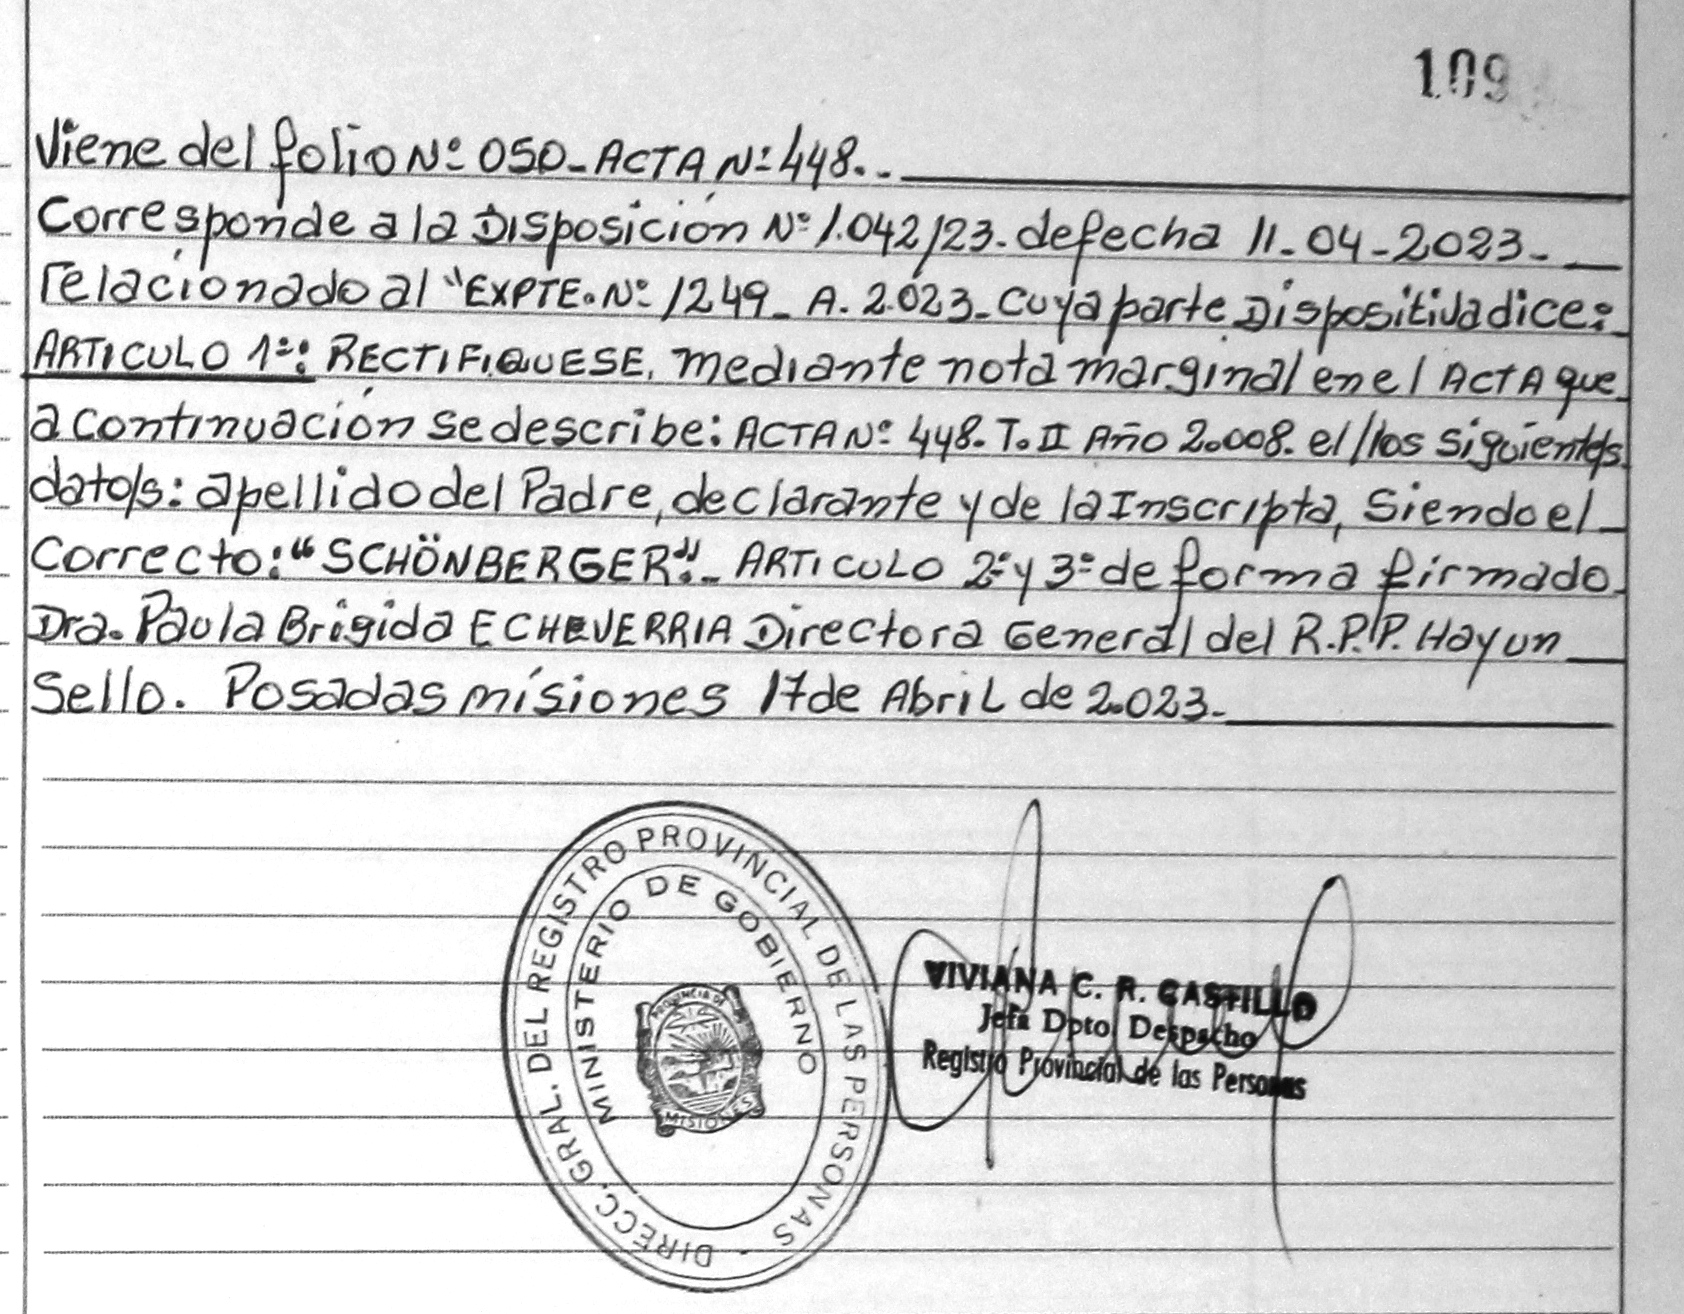 109
Viene del folio Nº 050_ ACTA Nº 448._
Corresponde a la Disposición Nº 1.042/23. de fecha 11_04_2023_
relacionado al "EXPTE. Nº 1249_ A. 2.023_ cuya parte Dispositiva dice:
ARTICULO 1º: RECTIFIQUESE, mediante nota marginal en el ACTA que
a continuación se describe: ACTA Nº 448. T. II Año 2.008. el/los siguiente/s
dato/s: apellido del Padre, declarante y de la Inscripta, Siendo el
Correcto: "SCHÖNBERGER"._ ARTICULO 2º y 3º de forma firmado
Dra. Paula Brigida ECHEVERRIA Directora General del R.P.P. Hay un
Sello. Posadas misiones 17 de Abril de 2.023_
DIRECC. GRAL. DEL REGISTRO PROVINCIAL DE LAS PERSONAS
MINISTERIO DE GOBIERNO
PROVINCIA DE
MISIONES
VIVIANA C. R. CASTILLO
Jefa Dpto Despacho
Registro Provincial de las Personas